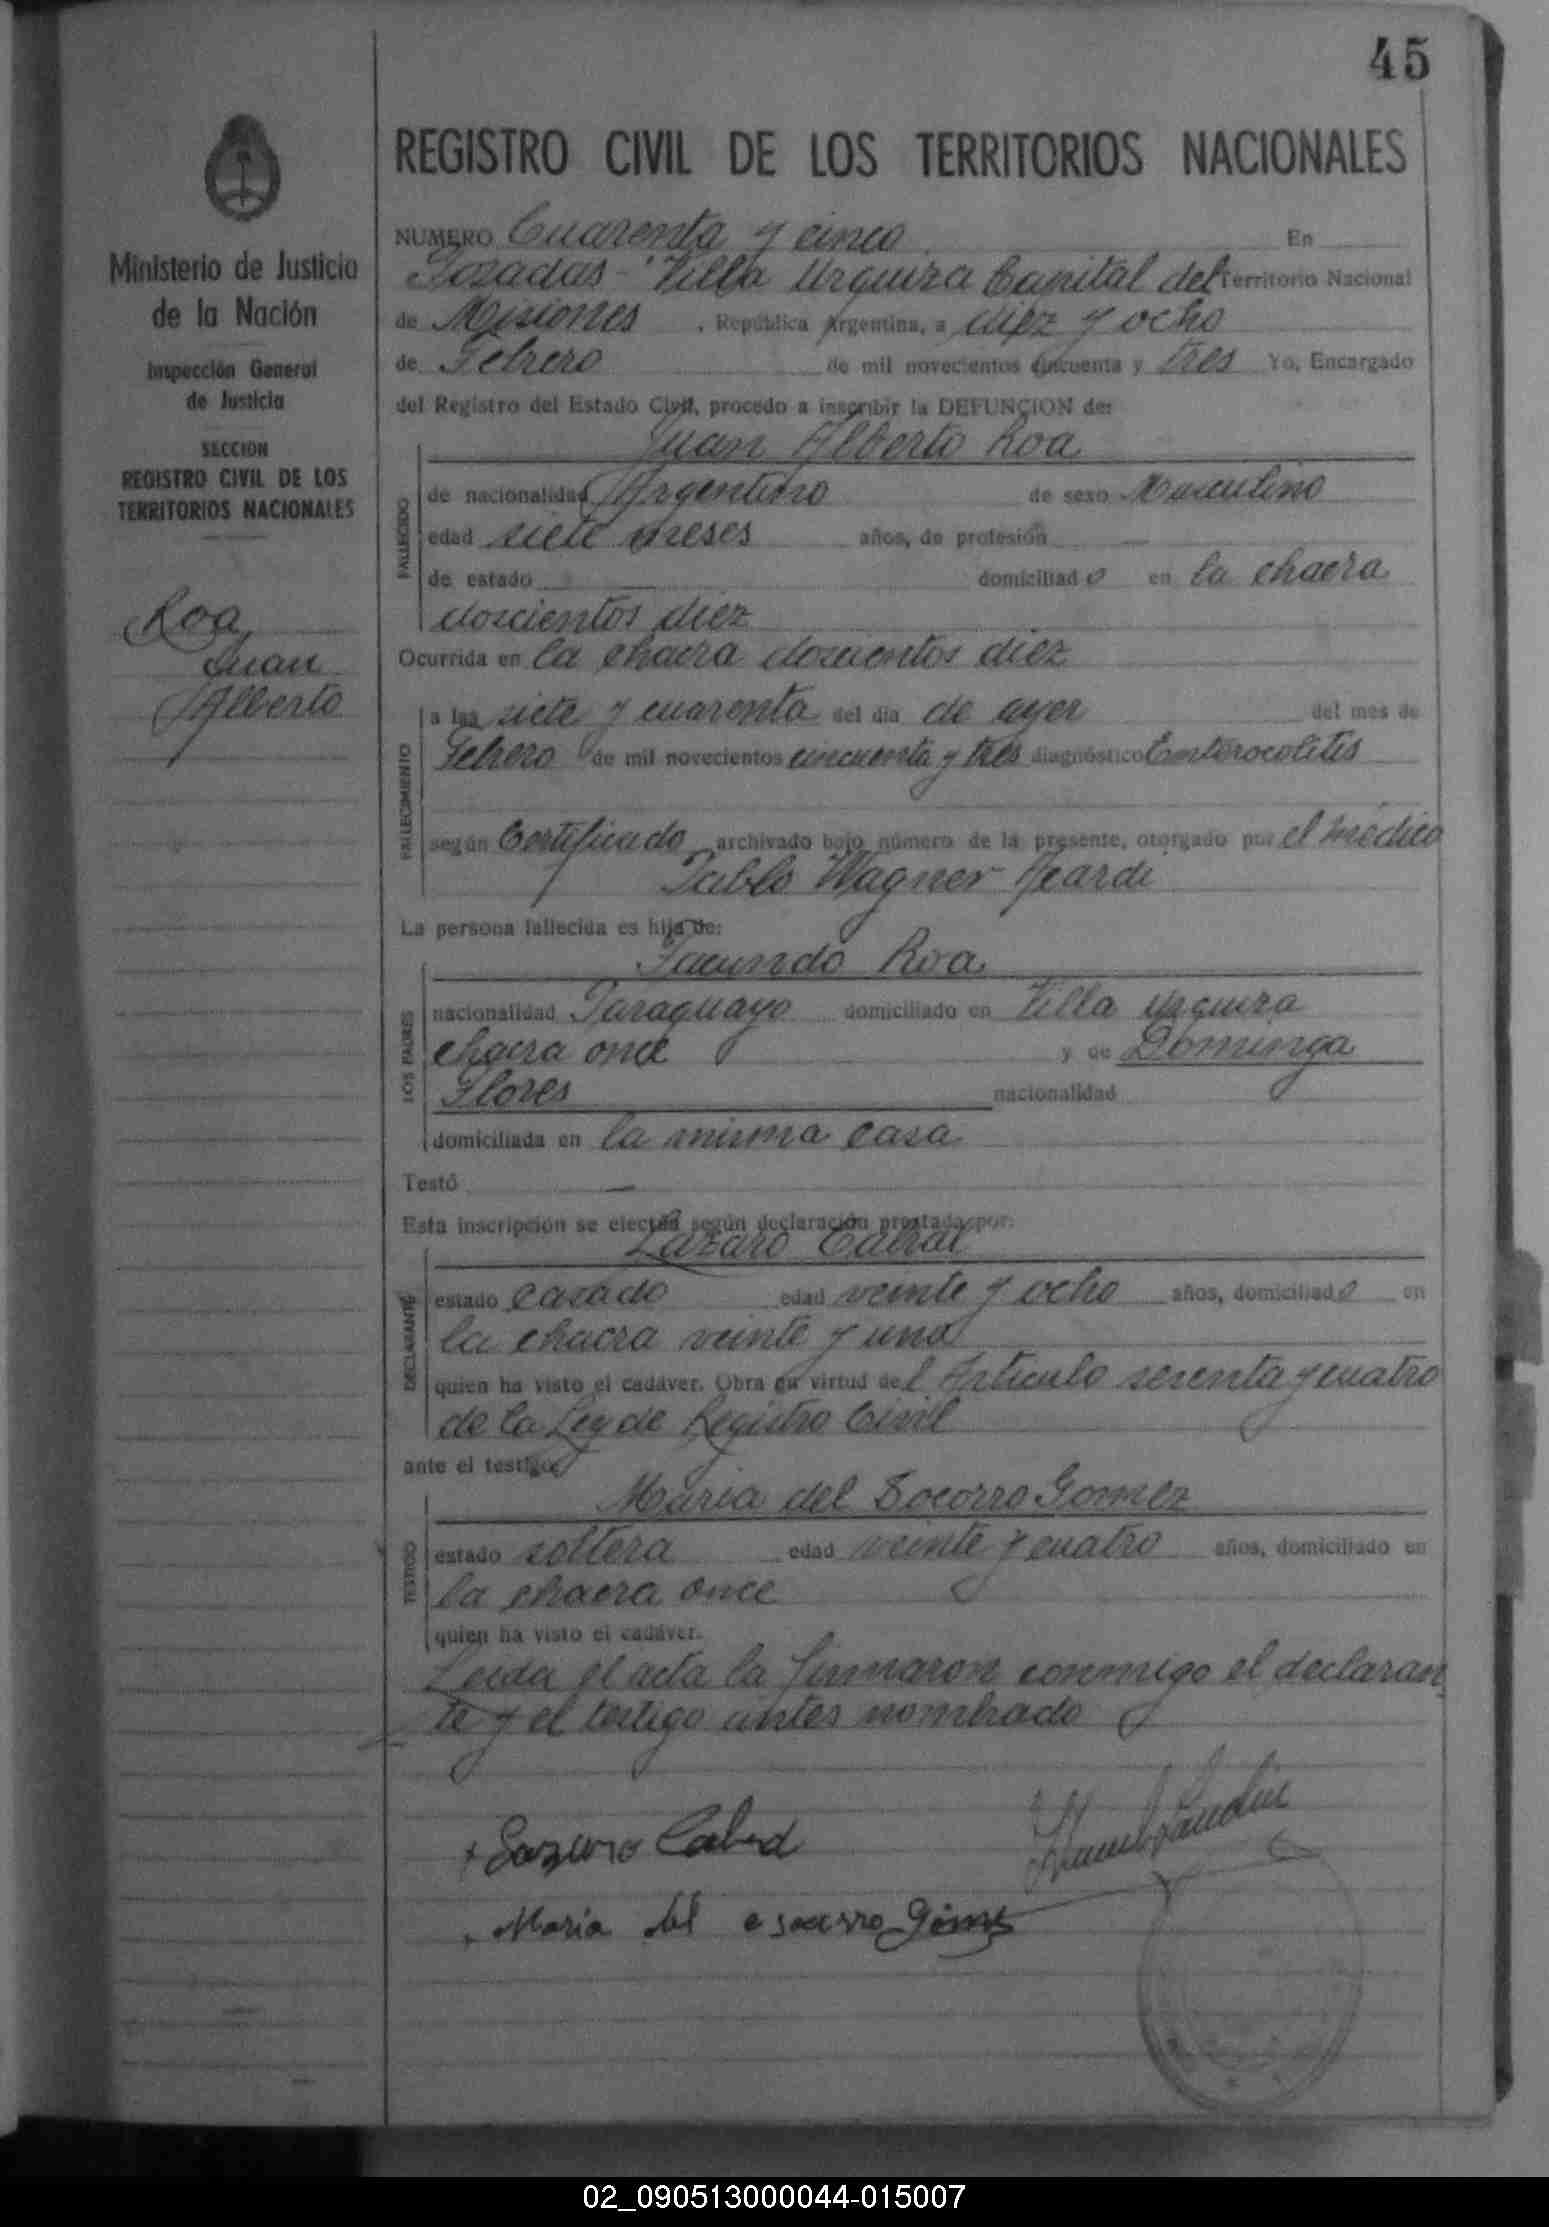 45
REGISTRO CIVIL DE LOS TERRITORIOS NACIONALES
Ministerio de Justicia
de la Nación
Inspección General
de Justicia
SECCION
REGISTRO CIVIL DE LOS
TERRITORIOS NACIONALES
Roa,
Juan
Alberto
NUMERO Cuarenta y cinco En
Posadas - Villa Urquiza Capital del Territorio Nacional
de Misiones, República Argentina, a diez y ocho
de Febrero de mil novecientos cincuenta y tres Yo, Encargado
del Registro del Estado Civil, procedo a inscribir la DEFUNCION de:
Juan Alberto Roa
FALLECIDO
de nacionalidad Argentino de sexo Masculino
edad siete meses años, de profesión —
de estado — domiciliado en la chacra
doscientos diez
Ocurrida en la chacra doscientos diez
FALLECIMIENTO
a las siete y cuarenta del día de ayer del mes de
Febrero de mil novecientos cincuenta y tres diagnóstico Enterocolitis
según Certificado archivado bajo número de la presente, otorgado por el médico
Pablo Wagner
La persona fallecida es hija de:
Facundo Roa
LOS PADRES
nacionalidad Paraguayo domiciliado en Villa Urquiza
chacra once y de Dominga
Flores nacionalidad
domiciliada en la misma casa
Testó —
Esta inscripción se efectúa según declaración prestada por:
Lazaro Cabral
DECLARANTE
estado casado edad veinte y ocho años, domiciliado en
la chacra veinte y una
quien ha visto el cadáver. Obra en virtud del Artículo sesenta y cuatro
de la Ley de Registro Civil
ante el testigo
Maria del Socorro Gomez
TESTIGO
estado soltera edad veinte y cuatro años, domiciliado en
la chacra once
quien ha visto el cadáver.
Leida el acta la firmaron conmigo el declaran
te y el testigo antes nombrado
Lazaro Cabral
Maria del esocorro Gomez
02_090513000044-015007